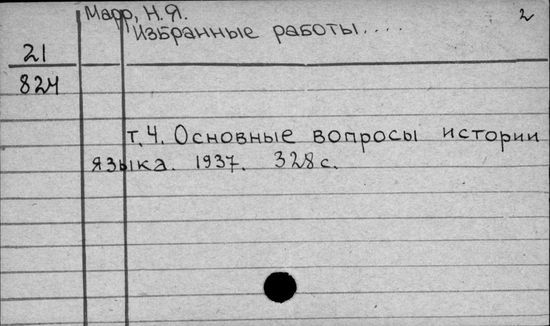 Марр, Н.Я.
2
Избранные работы....
21
824
т.4. Основные вопросы истории
языка. 1937. 328 с.